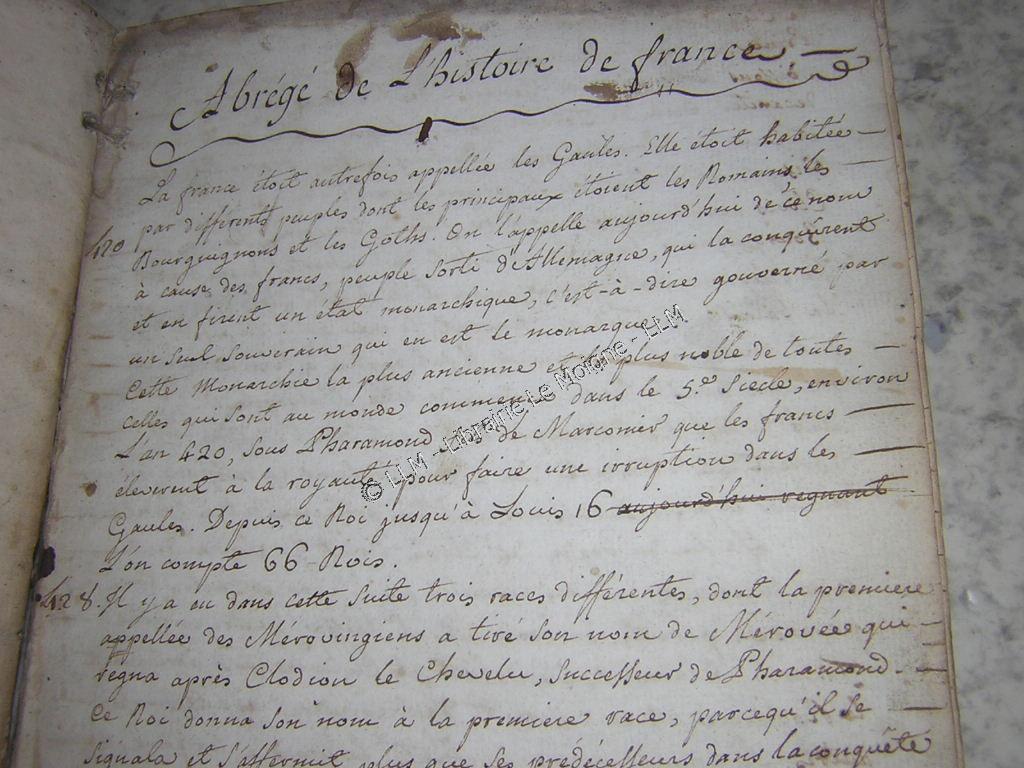 Abrégé de L'histoire de france.
La france étoit autrefois appellée les Gaules. Elle étoit habitée
par differents peuples dont les principaux étoient les Romains, les
420 Bourguignons et les Goths. On l'appelle aujourd'hui de ce nom
à cause des francs, peuple sorti d'Allemagne, qui la conquirent
et en firent un état monarchique, c'est-à-dire gouverné par
un seul souverain qui en est le monarque.
Cette Monarchie la plus ancienne et la plus noble de toutes
celles qui sont au monde commença dans le 5.e Siecle, environ
L'an 420, sous Pharamond de Marcomir que les francs
éleverent à la royauté pour faire une irruption dans les
Gaules. Depuis ce Roi jusqu'à Louis 16 aujourd'hui regnant
L'on compte 66 Rois.
428. Il y a eu dans cette suite trois races différentes, dont la premiere
appellée des Mérovingiens a tiré son nom de Mérovée qui
regna après Clodion le Chevelu, successeur de Pharamond.
Ce Roi donna son nom à la premiere race, parcequ'il se
signala et s'affermit plus que ses prédécesseurs dans la conquête
© LLM - Librairie Le Moine - LLM